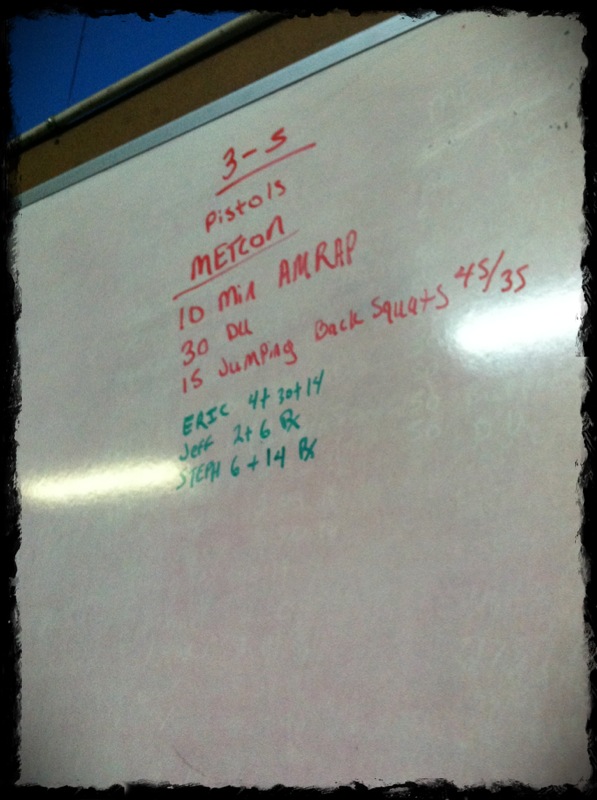 3-5
Pistols
METCON
10 Min AMRAP
30 DU
15 Jumping Back Squats 45/35
ERIC 4+30+14
Jeff 2+6 Rx
STEPH 6+14 Rx